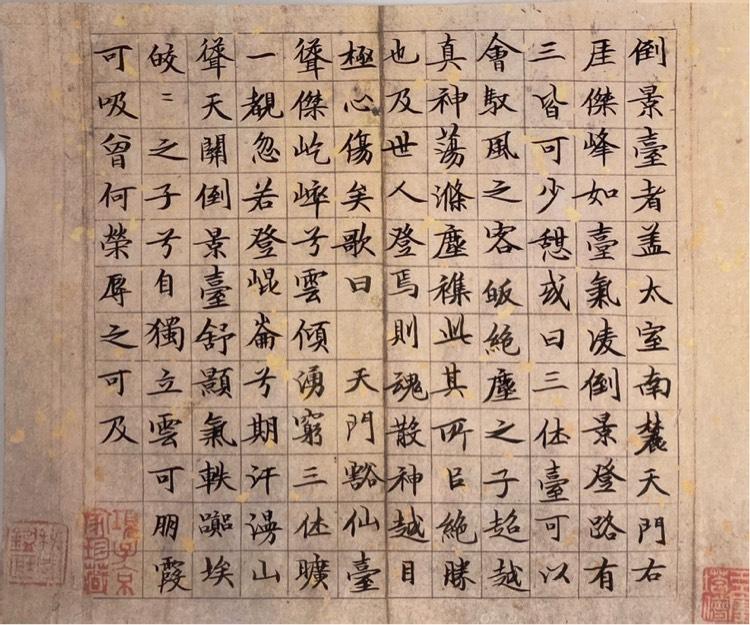 倒景臺者盖太室南麓天門右
厓傑峰如臺氣凌倒景登路有
三皆可少憩或曰三休臺可以
會馭風之客皈絶塵之子超越
真神蕩滌塵襍此其所㠯絶勝
也及世人登焉則魂散神越目
極心傷矣歌曰 天門豁仙臺
聳傑屹崪兮雲傾湧窮三休曠
一覩忽若登崐崙兮期汗漫山
聳天關倒景臺舒顥氣軼囂埃
皎〻之子兮自獨立雲可朋霞
可吸曾何榮辱之可及
項子京
家珍藏